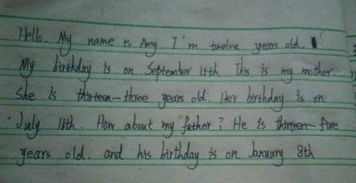 Hello. My name is Amy I'm twelve years old.
My birthday is on September 16th This is my mother.
She is thirteen-three years old. Her birthday is on
July 16th. How about my father? He is thirteen-five
years old. and his birthday is on January 8th